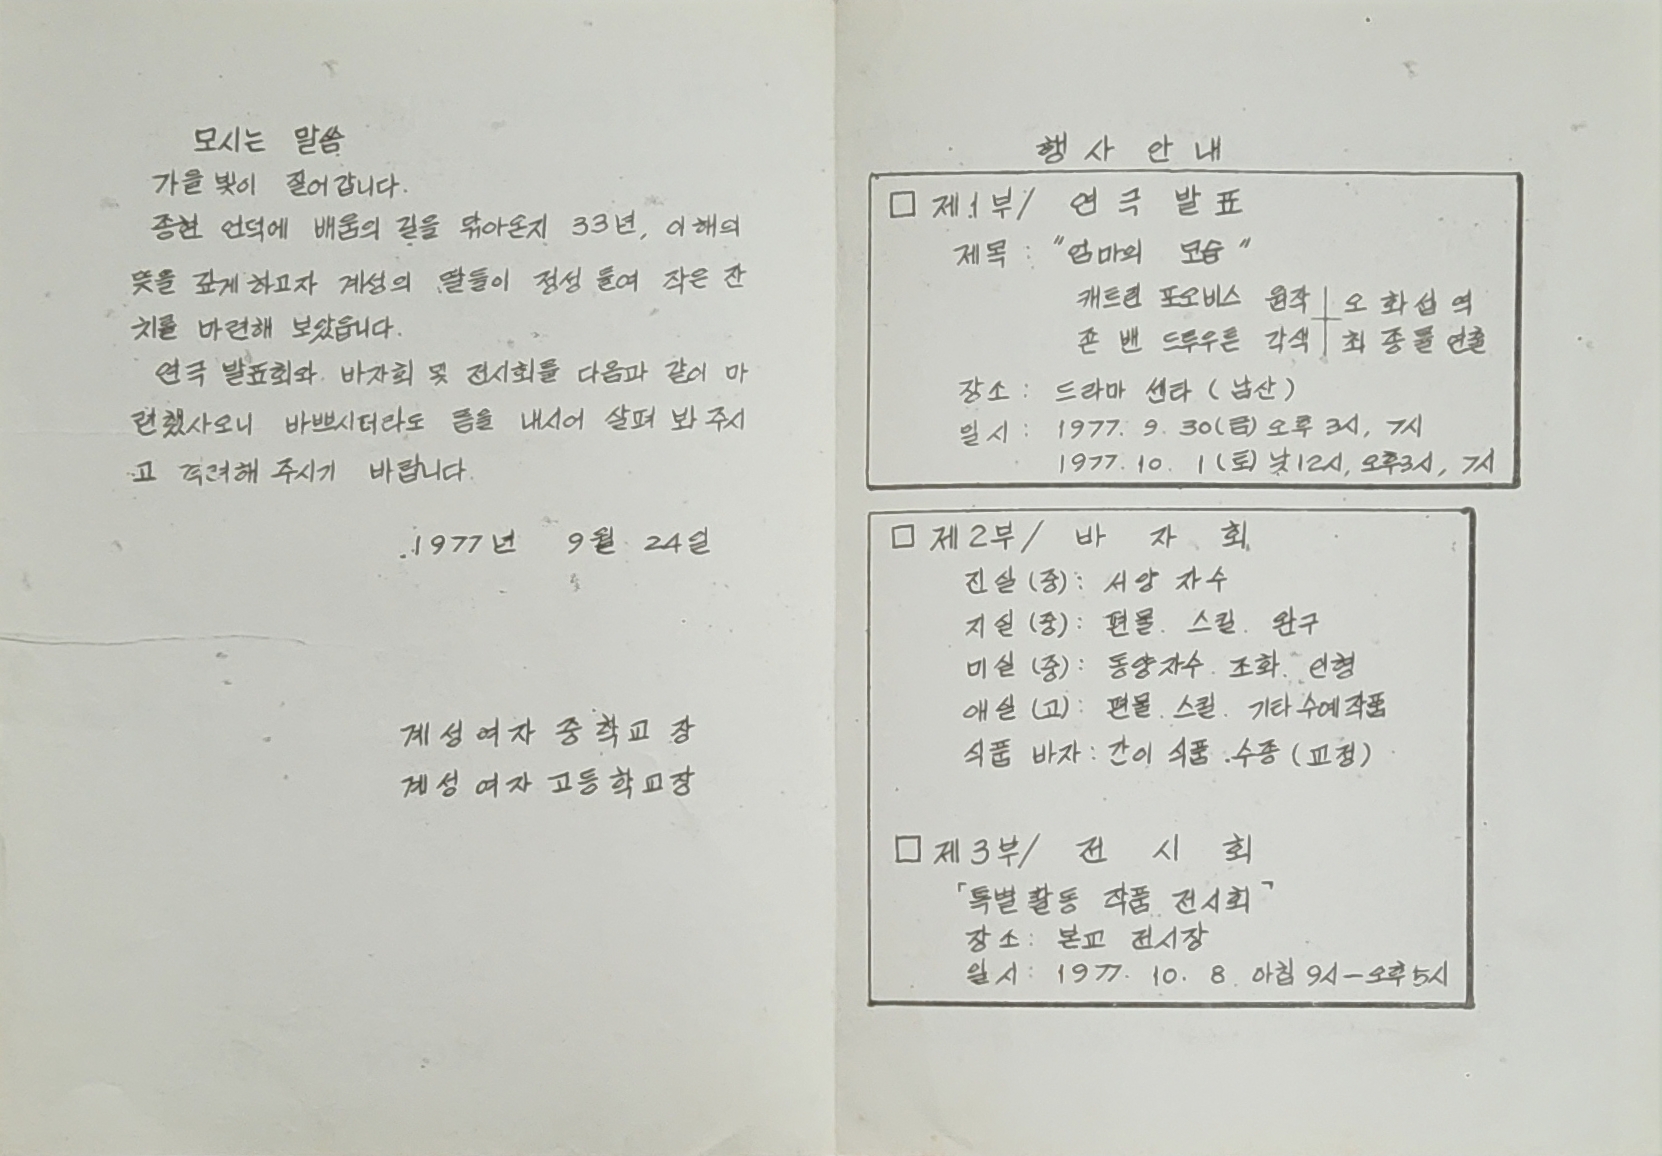 모시는 말씀
가을 빛이 짙어갑니다.
종현 언덕에 배움의 길을 닦아온지 33년, 이 해의
뜻을 깊게하고자 계성의 딸들이 정성 들여 작은 잔
치를 마련해 보았읍니다.
연극 발표회와 바자회 및 전시회를 다음과 같이 마
련했사오니 바쁘시더라도 틈을 내시어 살펴 봐 주시
고 격려해 주시기 바랍니다.
1977년 9월 24일
계성여자 중학교장
계성여자 고등학교장
행사안내
□ 제1부/ 연극 발표
제목 : "엄마의 모습"
캐트린 포오비스 원작 오화섭 역
죤 밴 드루우튼 각색 최종률 연출
장소 : 드라마 센타 (남산)
일시 : 1977. 9. 30(금) 오후 3시, 7시
1977. 10. 1(토) 낮12시, 오후3시, 7시
□ 제2부/ 바자회
진실(중) : 서양 자수
지실(중) : 편물. 스킬. 완구
미실(중) : 동양자수. 조화. 인형
애실(고) : 편물. 스킬. 기타수예작품
식품 바자 : 간이 식품. 수종(교정)
□ 제3부/ 전시회
「특별활동 작품 전시회」
장소 : 본교 전시장
일시 : 1977. 10. 8. 아침 9시-오후5시